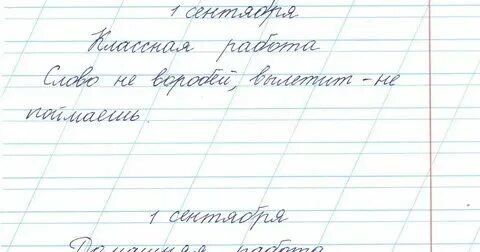 1 сентября
Классная работа
Слово не воробей, вылетит - не
поймаешь.
1 сентября
Домашняя работа